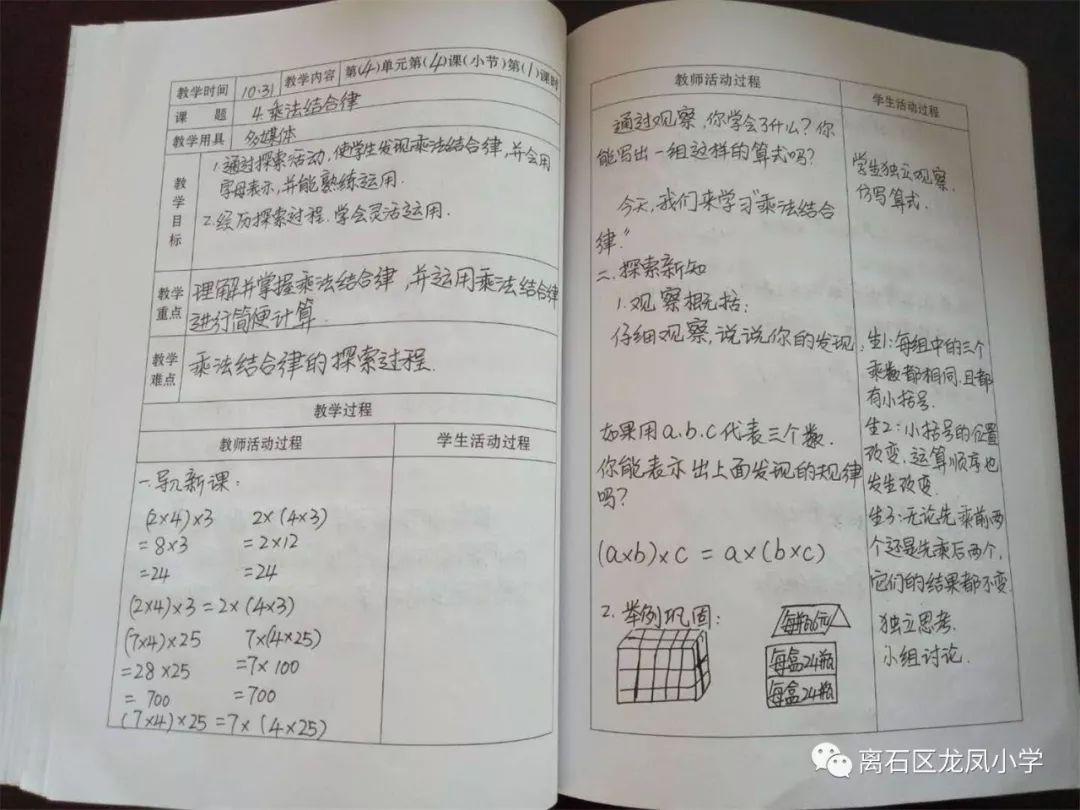 教学时间 10.31 教学内容 第(4)单元第(4)课(小节)第(1)课时
课 题 4.乘法结合律
教学用具 多媒体
教学目标
1.通过探索活动,使学生发现乘法结合律,并会用
字母表示,并能熟练运用.
2.经历探索过程.学会灵活运用.
教学重点
理解并掌握乘法结合律,并运用乘法结合律
进行简便计算.
教学难点
乘法结合律的探索过程.
教学过程
教师活动过程 学生活动过程
一.导入新课:
(2×4)×3 2×(4×3)
=8×3 =2×12
=24 =24
(2×4)×3=2×(4×3)
(7×4)×25 7×(4×25)
=28×25 =7×100
=700 =700
(7×4)×25=7×(4×25)
教师活动过程 学生活动过程
通过观察,你学会了什么?你
能写出一组这样的算式吗?
今天,我们来学习“乘法结合
律.”
二.探索新知
1.观察概括:
仔细观察,说说你的发现
如果用a.b.c代表三个数.
你能表示出上面发现的规律
吗?
(a×b)×c=a×(b×c)
2.举例巩固:
每盒24瓶
每盒24瓶
学生独立观察.
仿写算式.
生1:每组中的三个
乘数都相同.且都
有小括号.
生2:小括号的位置
改变.运算顺序也
发生改变.
生3:无论先乘前两
个还是先乘后两个,
它们的结果都不变.
独立思考.
小组讨论.
离石区龙凤小学